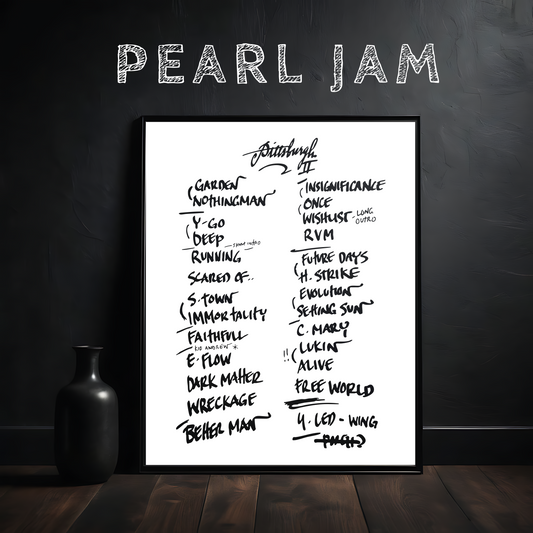 PEARL JAM
Pittsburgh
II
GARDEN
NOTHINGMAN
Y-GO
DEEP
RUNNING
SCARED OF..
S. TOWN
IMMORTALITY
FAITHFULL
E. FLOW
DARK MATTER
WRECKAGE
BETTER MAN
INSIGNIFICANCE
ONCE
WISHLIST - LONG OUTRO
RVM
FUTURE DAYS
H. STRIKE
EVOLUTION
SETTING SUN
C. MARY
!! LUKIN
ALIVE
FREE WORLD
Y. LED - WING